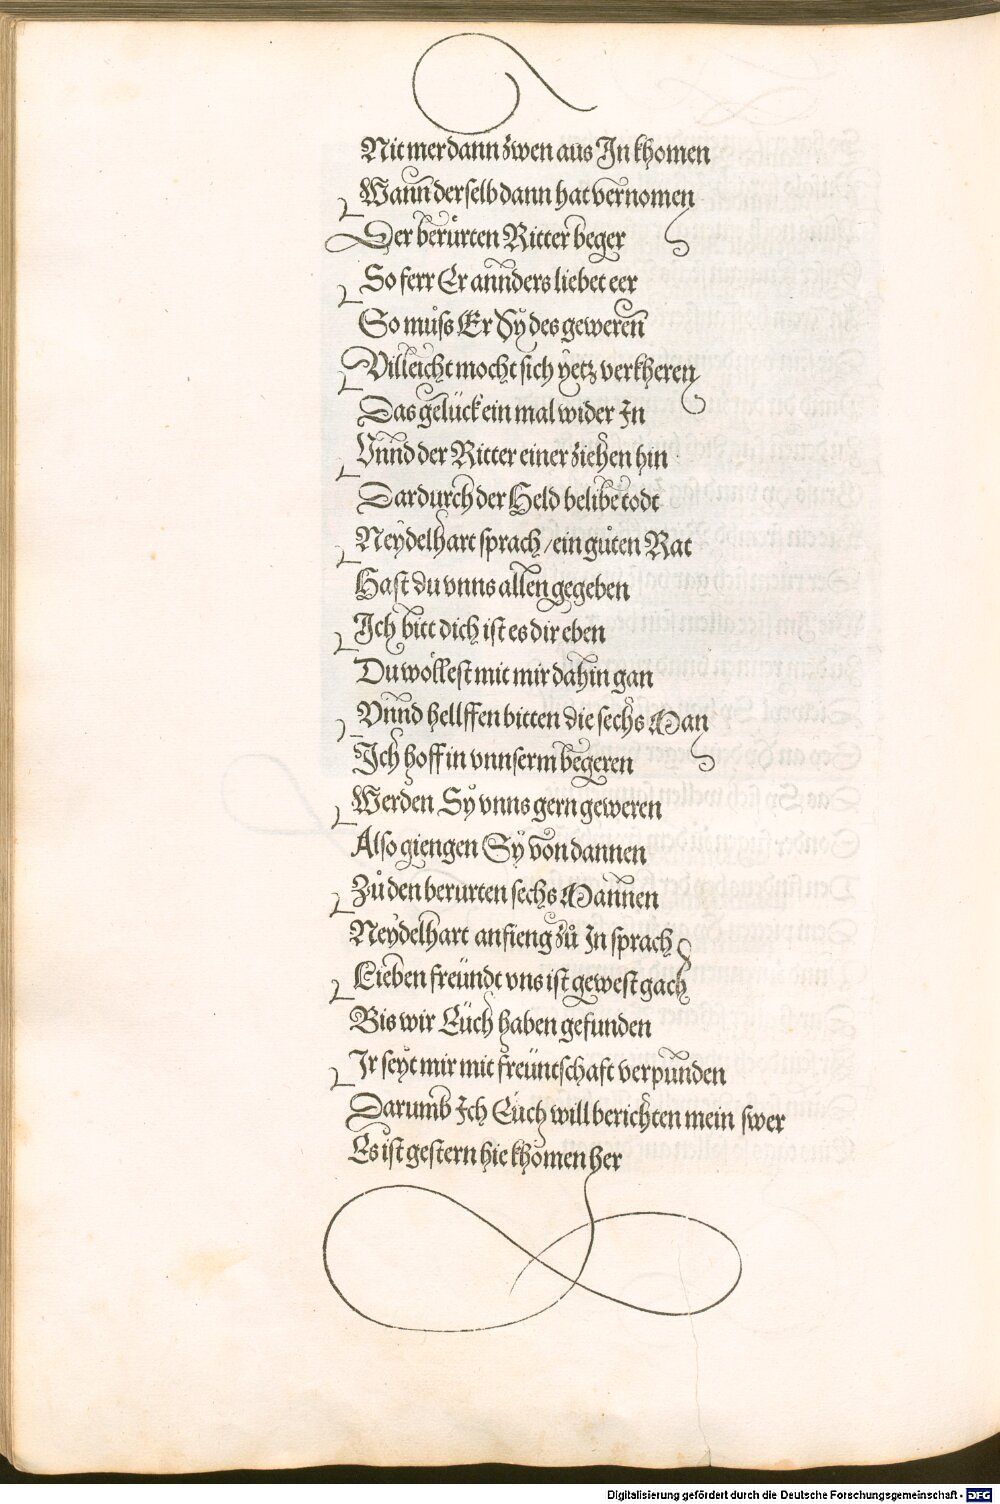 Nit mer dann zwen aus In khomen
Wann derselb dann hat vernomen
Der berürten Ritter beger
So ferr Er annders liebet eer
So můß Er Sy des geweren
Villeicht mocht sich yetz verkheren
Das gelück ein mal wider In
Vnnd der Ritter einer ziehen hin
Dardurch der Held belibe todt
Neydelhart sprach / ein gůten Rat
Hast du vnns allen gegeben
Ich bitt dich ist es dir eben
Du wöllest mit mir dahin gan
Vnnd hellffen bitten die sechs Man
Ich hoff in vnnserm begeren
Werden Sy vnns gern geweren
Also giengen Sy von dannen
Zů den berurten sechs Mannen
Neydelhart anfieng zů In sprach
Lieben freündt vns ist gewest gach
Bis wir Eüch haben gefunden
Ir seyt mir mit freüntschaft verpunden
Darumb Ich Eüch will berichten mein swer
Es ist gestern hie khomen her
Digitalisierung gefördert durch die Deutsche Forschungsgemeinschaft - DFG